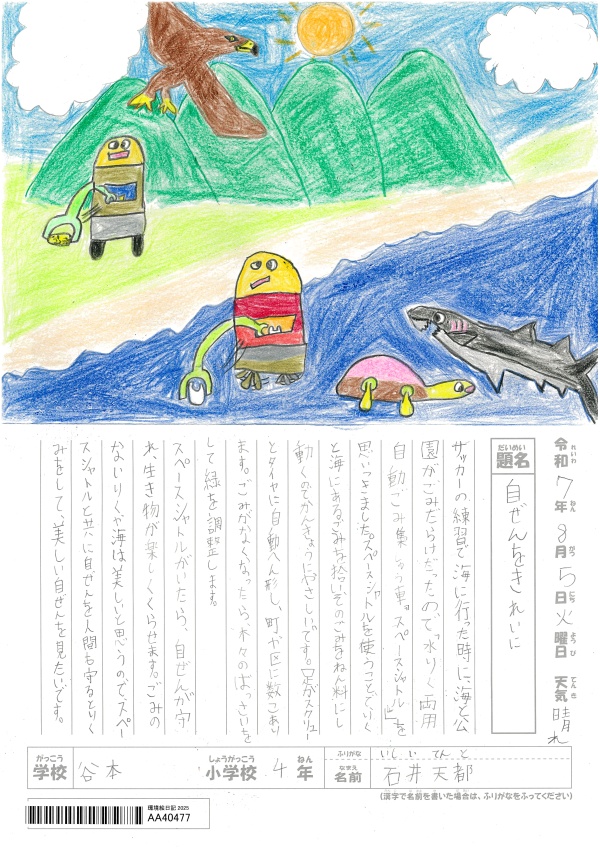 令和7年8月5日火曜日 天気 晴れ
れいわ ねん がつ にち ようび てんき
だいめい
題名 自ぜんをきれいに
サッカーの練習で海に行った時に、海と公
園がごみだらけだったので「水りく両用
自動ごみ集しゅう車。スペースシャトル」を
思いつきました。スペースシャトルを使うことでりく
と海にあるごみを拾いそのごみをねん料にし
動くのでかんきょうにやさしいです。足がスクリュー
とタイヤに自動へん形し、町や区に数こあり
ます。ごみがなくなったら、木々のばっさいを
して緑を調整します。
スペースシャトルがいたら、自ぜんが守
れ、生き物が楽しくくらせます。ごみの
ないりくや海は美しいと思うので、スペー
スシャトルと共に自ぜんを人間も守るとりく
みをして、美しい自ぜんを見たいです。
がっこう しょうがっこう ねん ふりがな いしい てんと
学校 谷本 小学校 4年 なまえ 名前 石井天都
(漢字で名前を書いた場合は、ふりがなをふってください)
環境絵日記 2025
AA40477